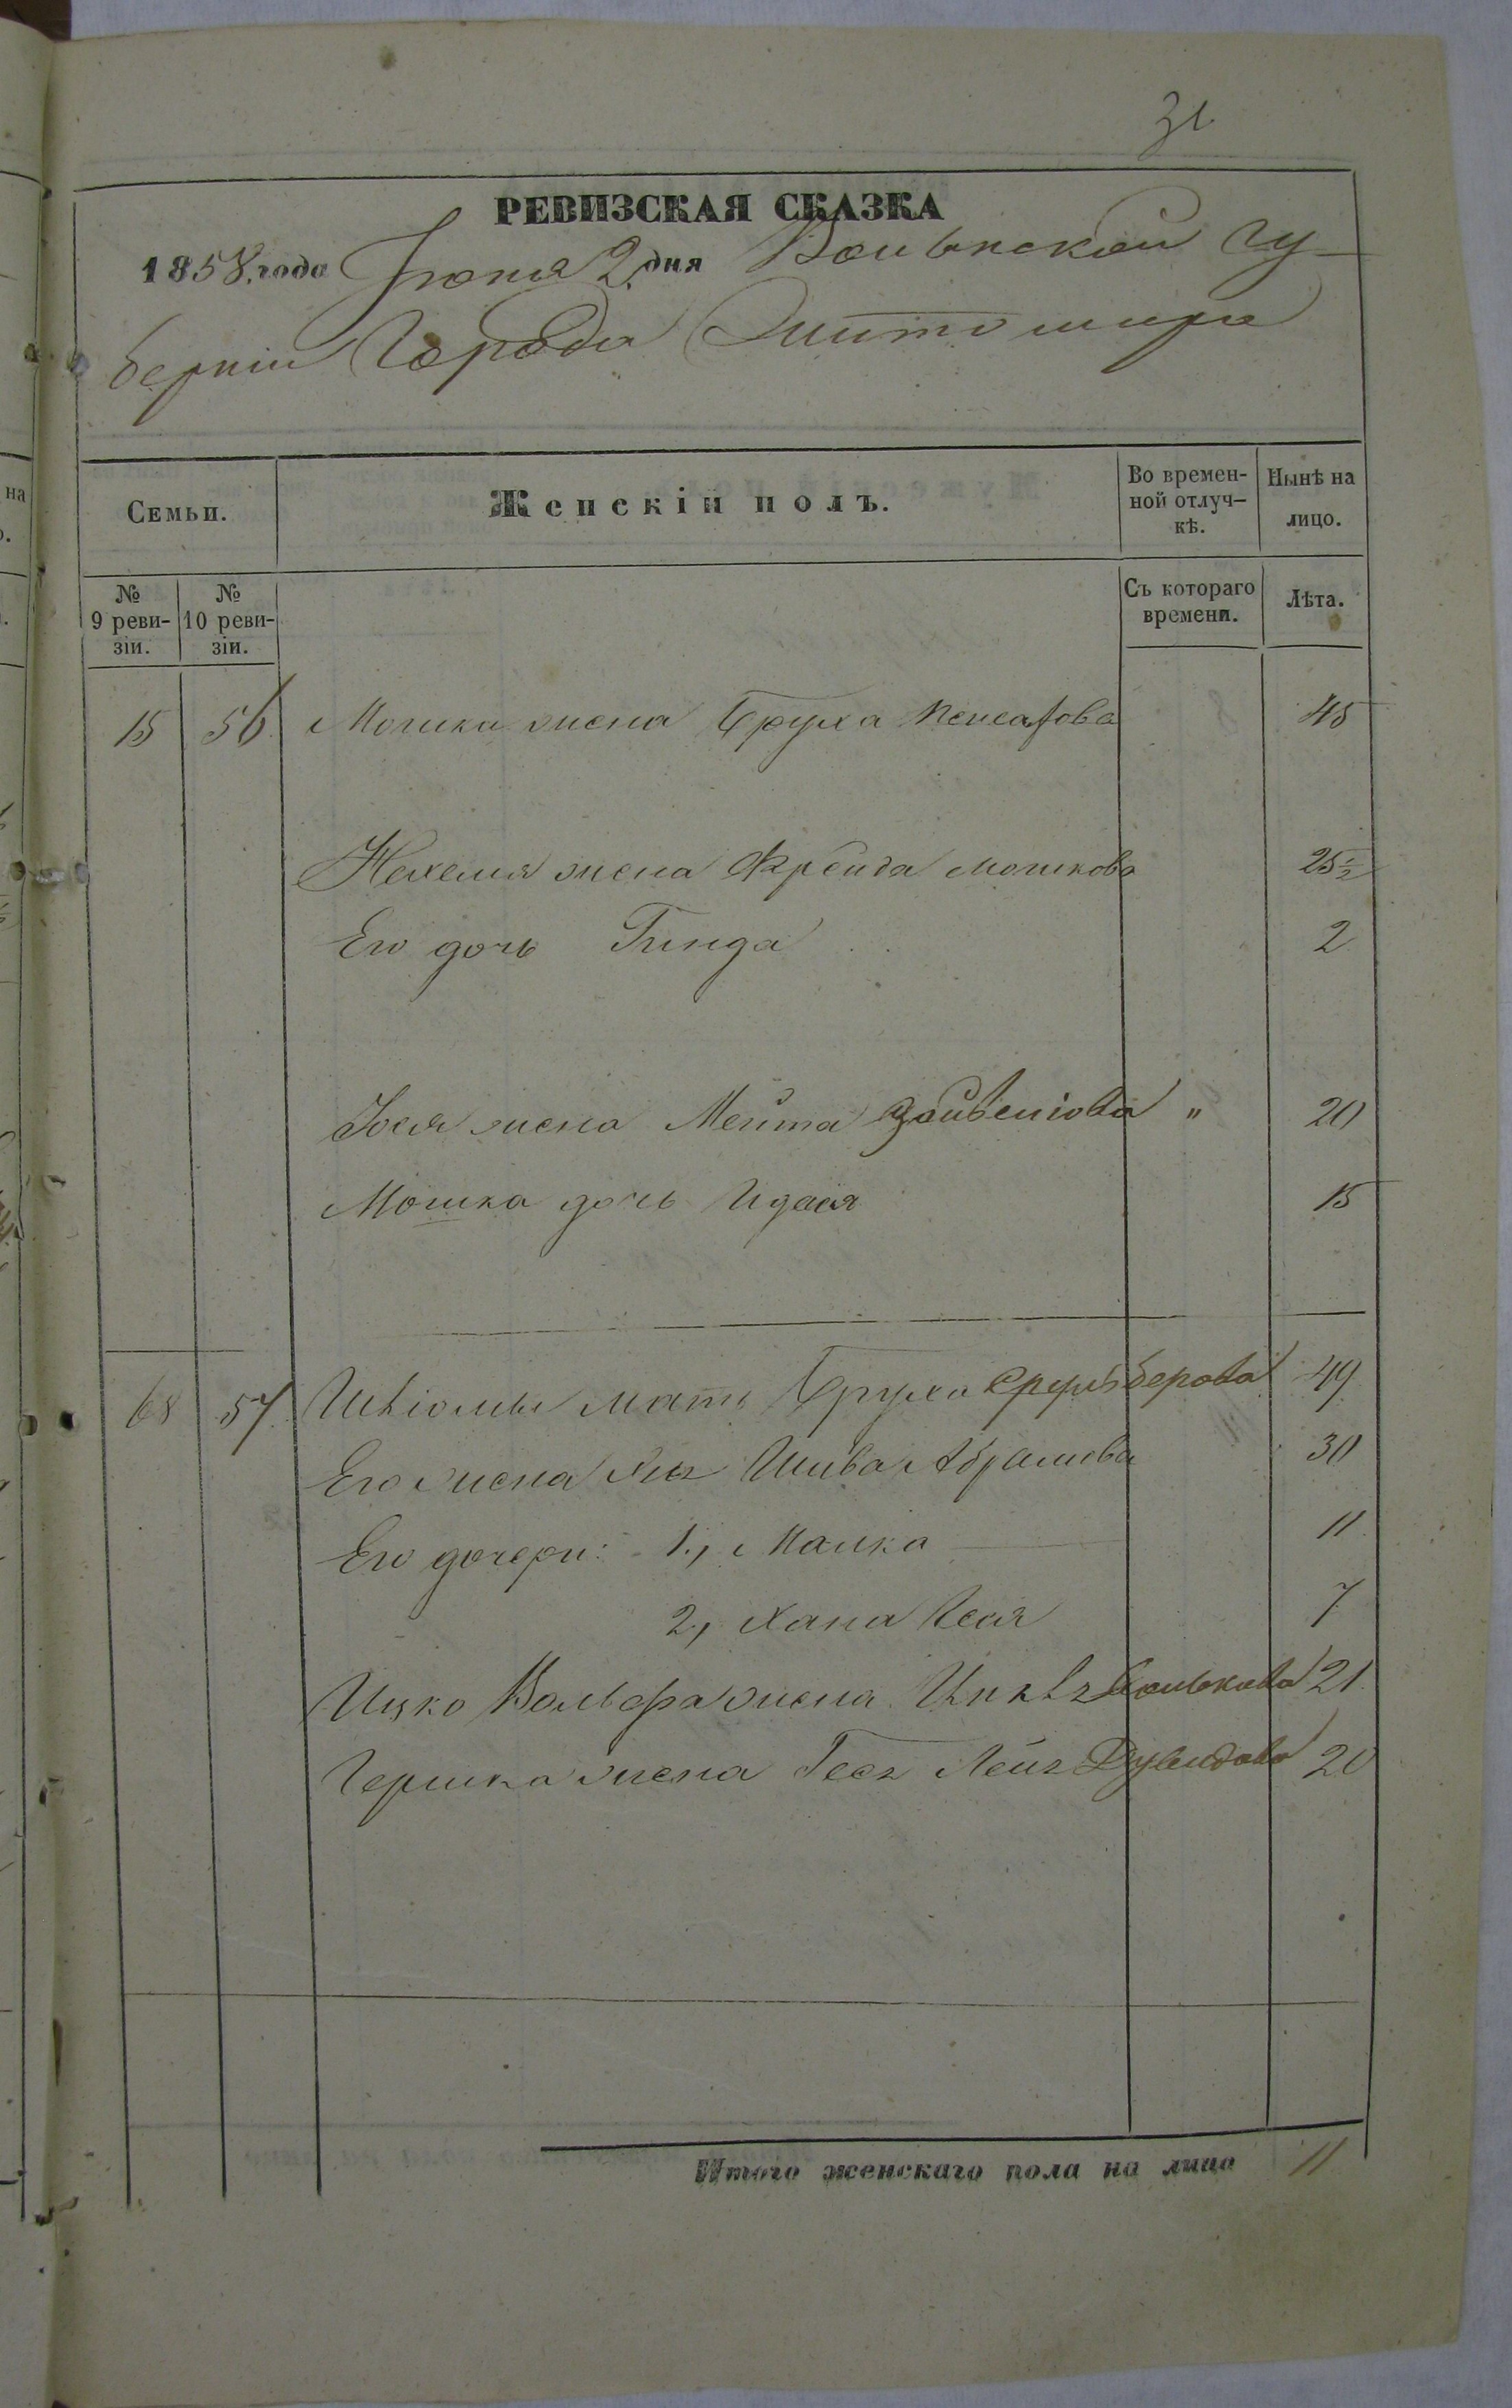 31
РЕВИЗСКАЯ СКАЗКА
1858. года Іюня 2. дня Волынской гу-
берніи Города Житомира
Семьи.
Женскій полъ.
Во времен-
ной отлуч-
кѣ.
Нынѣ на
лицо.
№
9 реви-
зіи.
№
10 реви-
зіи.
Съ котораго
времени.
Лѣта.
15 56 Мошка жена Бруха 45
Нехемя жена Фрейда Мошкова 25½
Его дочь Гинда 2
Іося жена Мейта " 20
Мошка дочь Идася 15
68 57. мать Бруха 49
Его жена Шива Абрамова 30
Его дочери: 1., Малка 11.
2., Хана Чеся 7
Ицко Вольфа жена 21.
Гершка жена Гося Лея Дувидова 20
Итого женскаго пола на лицо 11
на